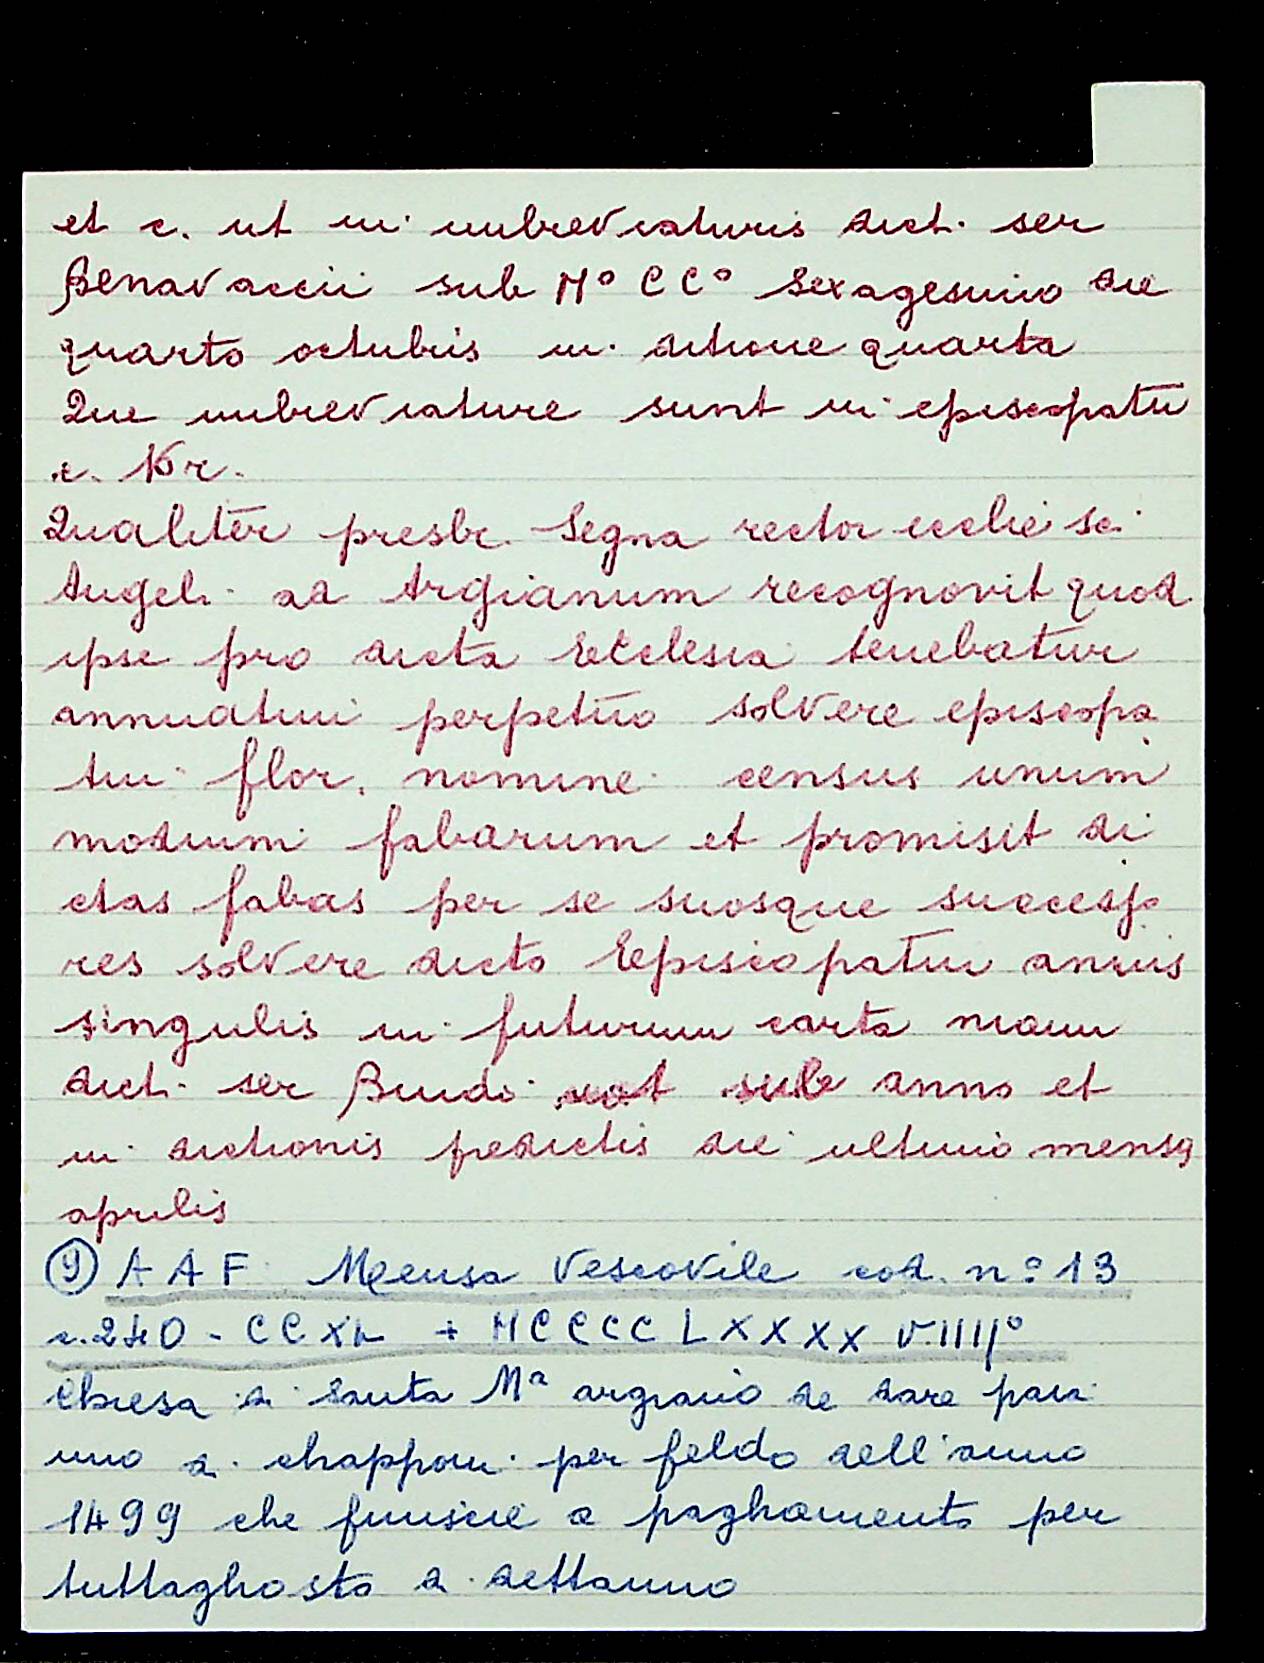 et c. ut in imbreviaturis dict. ser
Benavaccii sub M° CC° Sexagesimo die
quarto octubris in dictione quarta
Que imbreviature sunt in episcopatu
Qualiter presbr. Segna rector ecclie sci
Angeli ad Argianum recognovit quod
ipse pro dicta Ecclesia tenebatur
annuatim perpetuo solvere episcopa
tui flor. nomine census unum
modium fabarum et promisit di
ctas fabas per se suosque successo
res solvere dicto Episcopatui annis
singulis in futurum carta manu
dict. ser Bindi not sub anno et
in dictionis predictis die ultimo mensis
aprilis
9 AAF Mensa Vescovile cod. n° 13
c. 240 - CCXL + MCCCCLXXXXVIIII°
Chiesa di Santa Mª argiano de dare paia
uno di chapponi per feldo dell'anno
1499 che finiscie a paghamento per
tuttaghosto di dettanno